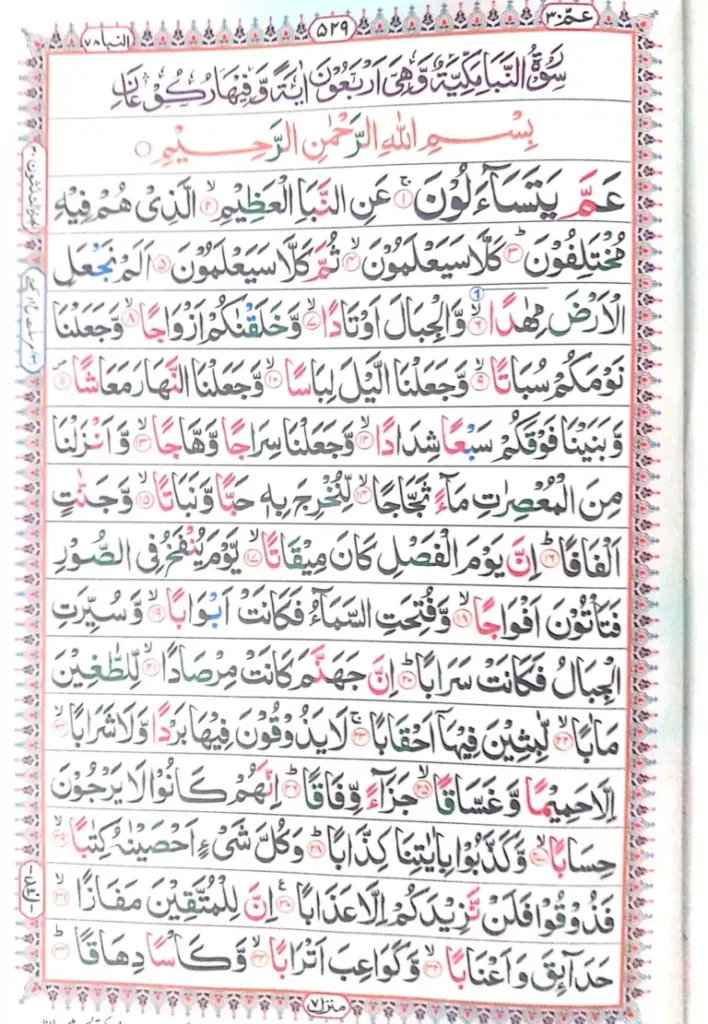 عمّ ۳۰
۵۲۹
النبا ۷۸
سُوْرَةُ النَّبَاِ مَكِّيَّةٌ وَّهِىَ اَرْبَعُوْنَ اٰيَةً وَّفِيْهَا رُكُوْعَانِ
بِسْمِ اللهِ الرَّحْمٰنِ الرَّحِيْمِ ○
عَمَّ يَتَسَآءَلُوْنَ ۚ‏﴿۱﴾ عَنِ النَّبَاِ الْعَظِيْمِ ۙ‏﴿۲﴾ الَّذِىْ هُمْ فِيْهِ
مُخْتَلِفُوْنَ ؕ‏﴿۳﴾ كَلَّا سَيَعْلَمُوْنَ ۙ‏﴿۴﴾ ثُمَّ كَلَّا سَيَعْلَمُوْنَ ﴿۵﴾ اَلَمْ نَجْعَلِ
الْاَرْضَ مِهٰدًا ۙ‏﴿۶﴾ وَّالْجِبَالَ اَوْتَادًا ۙ‏﴿۷﴾ وَّخَلَقْنٰكُمْ اَزْوَاجًا ۙ‏﴿۸﴾ وَّجَعَلْنَا
نَوْمَكُمْ سُبَاتًا ۙ‏﴿۹﴾ وَّجَعَلْنَا الَّيْلَ لِبَاسًا ۙ‏﴿۱۰﴾ وَّجَعَلْنَا النَّهَارَ مَعَاشًا ۪‏﴿۱۱﴾
وَّبَنَيْنَا فَوْقَكُمْ سَبْعًا شِدَادًا ۙ‏﴿۱۲﴾ وَّجَعَلْنَا سِرَاجًا وَّهَّاجًا ۙ‏﴿۱۳﴾ وَّاَنْزَلْنَا
مِنَ الْمُعْصِرٰتِ مَآءً ثَجَّاجًا ۙ‏﴿۱۴﴾ لِّنُخْرِجَ بِهٖ حَبًّا وَّنَبَاتًا ۙ‏﴿۱۵﴾ وَّجَنّٰتٍ
اَلْفَافًا ؕ‏﴿۱۶﴾ اِنَّ يَوْمَ الْفَصْلِ كَانَ مِيْقَاتًا ۙ‏﴿۱۷﴾ يَّوْمَ يُنْفَخُ فِى الصُّوْرِ
فَتَاْتُوْنَ اَفْوَاجًا ۙ‏﴿۱۸﴾ وَّفُتِحَتِ السَّمَآءُ فَكَانَتْ اَبْوَابًا ۙ‏﴿۱۹﴾ وَّسُيِّرَتِ
الْجِبَالُ فَكَانَتْ سَرَابًا ؕ‏﴿۲۰﴾ اِنَّ جَهَنَّمَ كَانَتْ مِرْصَادًا ۙ‏﴿۲۱﴾ لِّلطَّٰغِيْنَ
مَاٰبًا ۙ‏﴿۲۲﴾ لّٰبِثِيْنَ فِيْهَاۤ اَحْقَابًا ۚ‏﴿۲۳﴾ لَا يَذُوْقُوْنَ فِيْهَا بَرْدًا وَّلَا شَرَابًا ۙ‏﴿۲۴﴾
اِلَّا حَمِيْمًا وَّغَسَّاقًا ۙ‏﴿۲۵﴾ جَزَآءً وِّفَاقًا ؕ‏﴿۲۶﴾ اِنَّهُمْ كَانُوْا لَا يَرْجُوْنَ
حِسَابًا ۙ‏﴿۲۷﴾ وَّكَذَّبُوْا بِاٰيٰتِنَا كِذَّابًا ؕ‏﴿۲۸﴾ وَكُلَّ شَىْءٍ اَحْصَيْنٰهُ كِتٰبًا ۙ‏﴿۲۹﴾
فَذُوْقُوْا فَلَنْ نَّزِيْدَكُمْ اِلَّا عَذَابًا ‏﴿۳۰﴾ اِنَّ لِلْمُتَّقِيْنَ مَفَازًا ۙ‏﴿۳۱﴾
حَدَآئِقَ وَاَعْنَابًا ۙ‏﴿۳۲﴾ وَّكَوَاعِبَ اَتْرَابًا ۙ‏﴿۳۳﴾ وَّكَاْسًا دِهَاقًا ؕ‏﴿۳۴﴾
منزل ۷